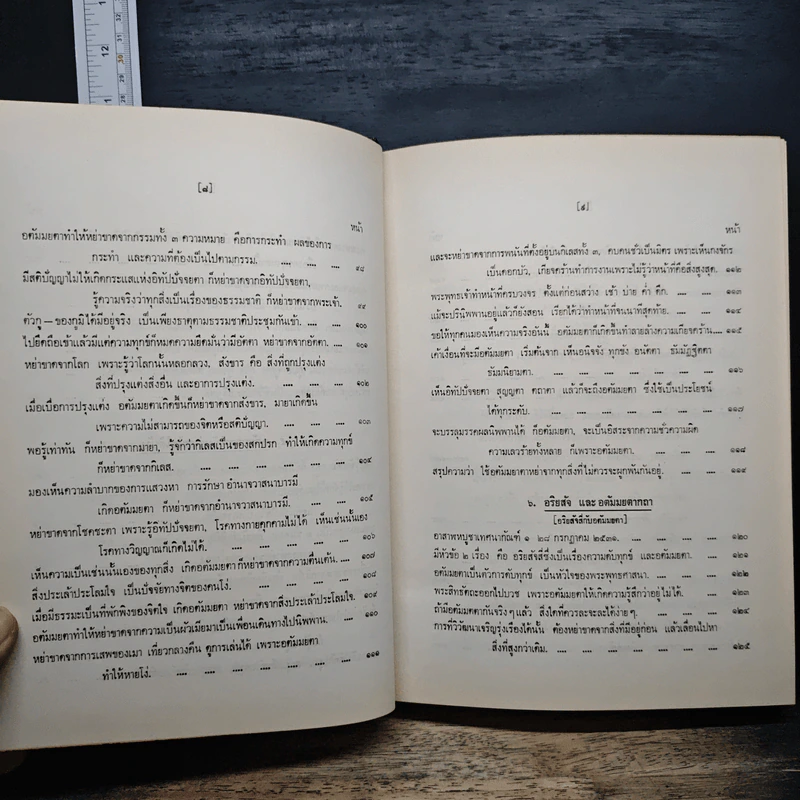 [๘]
หน้า
อตัมมยตาทำให้หย่าขาดจากกรรมทั้ง ๓ ความหมาย คือการกระทำ ผลของการ
กระทำ และความที่ต้องเป็นไปตามกรรม. .... .... .... ๙๘
มีสติปัญญาไม่ให้เกิดกระแสแห่งอิทัปปัจจยตา ก็หย่าขาดจากอิทัปปัจจยตา,
รู้ความจริงว่าทุกสิ่งเป็นเรื่องของธรรมชาติ ก็หย่าขาดจากพระเจ้า. ๙๙
ตัวกู—ของกูมิได้มีอยู่จริง เป็นเพียงธาตุตามธรรมชาติประชุมกันเข้า. .... .... ๑๐๐
ไปยึดถือเข้าแล้วมีแต่ความทุกข์หมดความยึดมั่นว่ามีอัตตา หย่าขาดจากอัตตา. ๑๐๑
หย่าขาดจากโลก เพราะรู้ว่าโลกนั้นหลอกลวง, สังขาร คือ สิ่งที่ถูกปรุงแต่ง
สิ่งที่ปรุงแต่งสิ่งอื่น และอาการปรุงแต่ง. .... .... .... .... ๑๐๒
เมื่อเบื่อการปรุงแต่ง อตัมมยตาเกิดขึ้นก็หย่าขาดจากสังขาร, มายาเกิดขึ้น
เพราะความไม่สามารถของจิตหรือสติปัญญา. .... .... .... ๑๐๓
พอรู้เท่าทัน ก็หย่าขาดจากมายา, รู้จักว่ากิเลสเป็นของสกปรก ทำให้เกิดความทุกข์
ก็หย่าขาดจากกิเลส. .... .... .... .... .... .... ๑๐๔
มองเห็นความลำบากของการแสวงหา การรักษา อำนาจวาสนาบารมี
เกิดอตัมมยตา ก็หย่าขาดจากอำนาจวาสนาบารมี. .... .... ๑๐๕
หย่าขาดจากโชคชะตา เพราะรู้อิทัปปัจจยตา, โรคทางกายคุกคามไม่ได้ เห็นเช่นนั้นเอง
โรคทางวิญญาณก็เกิดไม่ได้. .... .... .... .... .... ๑๐๖
เห็นความเป็นเช่นนั้นเองของทุกสิ่ง เกิดอตัมมยตา ก็หย่าขาดจากความตื่นเต้น. ๑๐๗
สิ่งประเล้าประโลมใจ เป็นปัจจัยทางจิตของคนโง่. .... .... .... .... ๑๐๘
เมื่อมีธรรมะเป็นที่พักพิงของจิตใจ เกิดอตัมมยตา หย่าขาดจากสิ่งประเล้าประโลมใจ. ๑๐๙
อตัมมยตาทำให้หย่าขาดจากความเป็นผัวเมียมาเป็นเพื่อนเดินทางไปนิพพาน. .... ๑๑๐
หย่าขาดจากการเสพของเมา เที่ยวกลางคืน ดูการเล่นได้ เพราะอตัมมยตา
ทำให้หายโง่. .... .... .... .... .... .... .... ๑๑๑
[๙]
หน้า
และจะหย่าขาดจากการพนันที่ตั้งอยู่บนกิเลสทั้ง ๓, คบคนชั่วเป็นมิตร เพราะเห็นกงจักร
เป็นดอกบัว, เกียจคร้านทำการงานเพราะไม่รู้ว่าหน้าที่คือสิ่งสูงสุด. ๑๑๒
พระพุทธเจ้าทำหน้าที่ครบวงจร ตั้งแต่ก่อนสว่าง เช้า บ่าย ค่ำ ดึก. .... .... ๑๑๓
แม้จะปรินิพพานอยู่แล้วก็ยังสอน เรียกได้ว่าทำหน้าที่จนนาทีสุดท้าย. .... .... ๑๑๔
ขอให้ทุกคนมองเห็นความจริงอันนี้ อตัมมยตาก็เกิดขึ้นทำลายล้างความเกียจคร้าน. .... ๑๑๕
เค้าเงื่อนที่จะมีอตัมมยตา เริ่มต้นจาก เห็นอนิจจัง ทุกขัง อนัตตา ธัมมัฏฐิตตา
ธัมมนิยามตา. .... .... .... .... .... .... .... ๑๑๖
เห็นอิทัปปัจจยตา สุญญตา ตถาตา แล้วก็จะถึงอตัมมยตา ซึ่งใช้เป็นประโยชน์
ได้ทุกระดับ. .... .... .... .... .... .... .... ๑๑๗
จะบรรลุมรรคผลนิพพานได้ ก็อตัมมยตา, จะเป็นอิสระจากความชั่วความผิด
ความเลวร้ายทั้งหลาย ก็เพราะอตัมมยตา. .... .... .... .... ๑๑๘
สรุปความว่า ใช้อตัมมยตาหย่าจากทุกสิ่งที่ไม่ควรจะผูกพันกันอยู่. .... .... .... ๑๑๙
๖. อริยสัจ และ อตัมมยตากถา
[อริยสัจสี่กับอตัมมยตา]
อาสาฬหบูชาเทศนากัณฑ์ ๑ ๒๘ กรกฎาคม ๒๕๓๑. .... .... .... .... ๑๒๐
มีหัวข้อ ๒ เรื่อง คือ อริยสัจสี่ซึ่งเป็นเรื่องความดับทุกข์ และอตัมมยตา. .... .... ๑๒๑
อตัมมยตาเป็นตัวการดับทุกข์ เป็นหัวใจของพระพุทธศาสนา. .... .... .... ๑๒๒
พระสิทธัตถะออกไปบวช เพราะอตัมมยตาให้เกิดความรู้สึกว่าอยู่ไม่ได้. .... .... ๑๒๓
ถ้ามีอตัมมยตากันจริง ๆ แล้ว สิ่งใดที่ควรละจะละได้ง่าย ๆ. .... .... .... .... ๑๒๔
การที่วิวัฒนาเจริญรุ่งเรืองได้นั้น ต้องหย่าขาดจากสิ่งที่มีอยู่ก่อน แล้วเลื่อนไปหา
สิ่งที่สูงกว่าเดิม. .... .... .... .... .... .... .... ๑๒๕